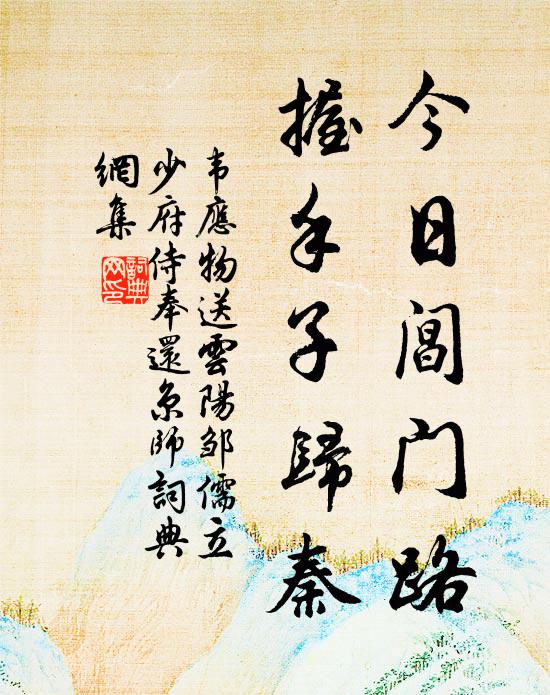 今日閶门路
握手子歸秦
韦應物送雲陽邹儒立
少府侍奉還京师詞典
網集
詞典
网印